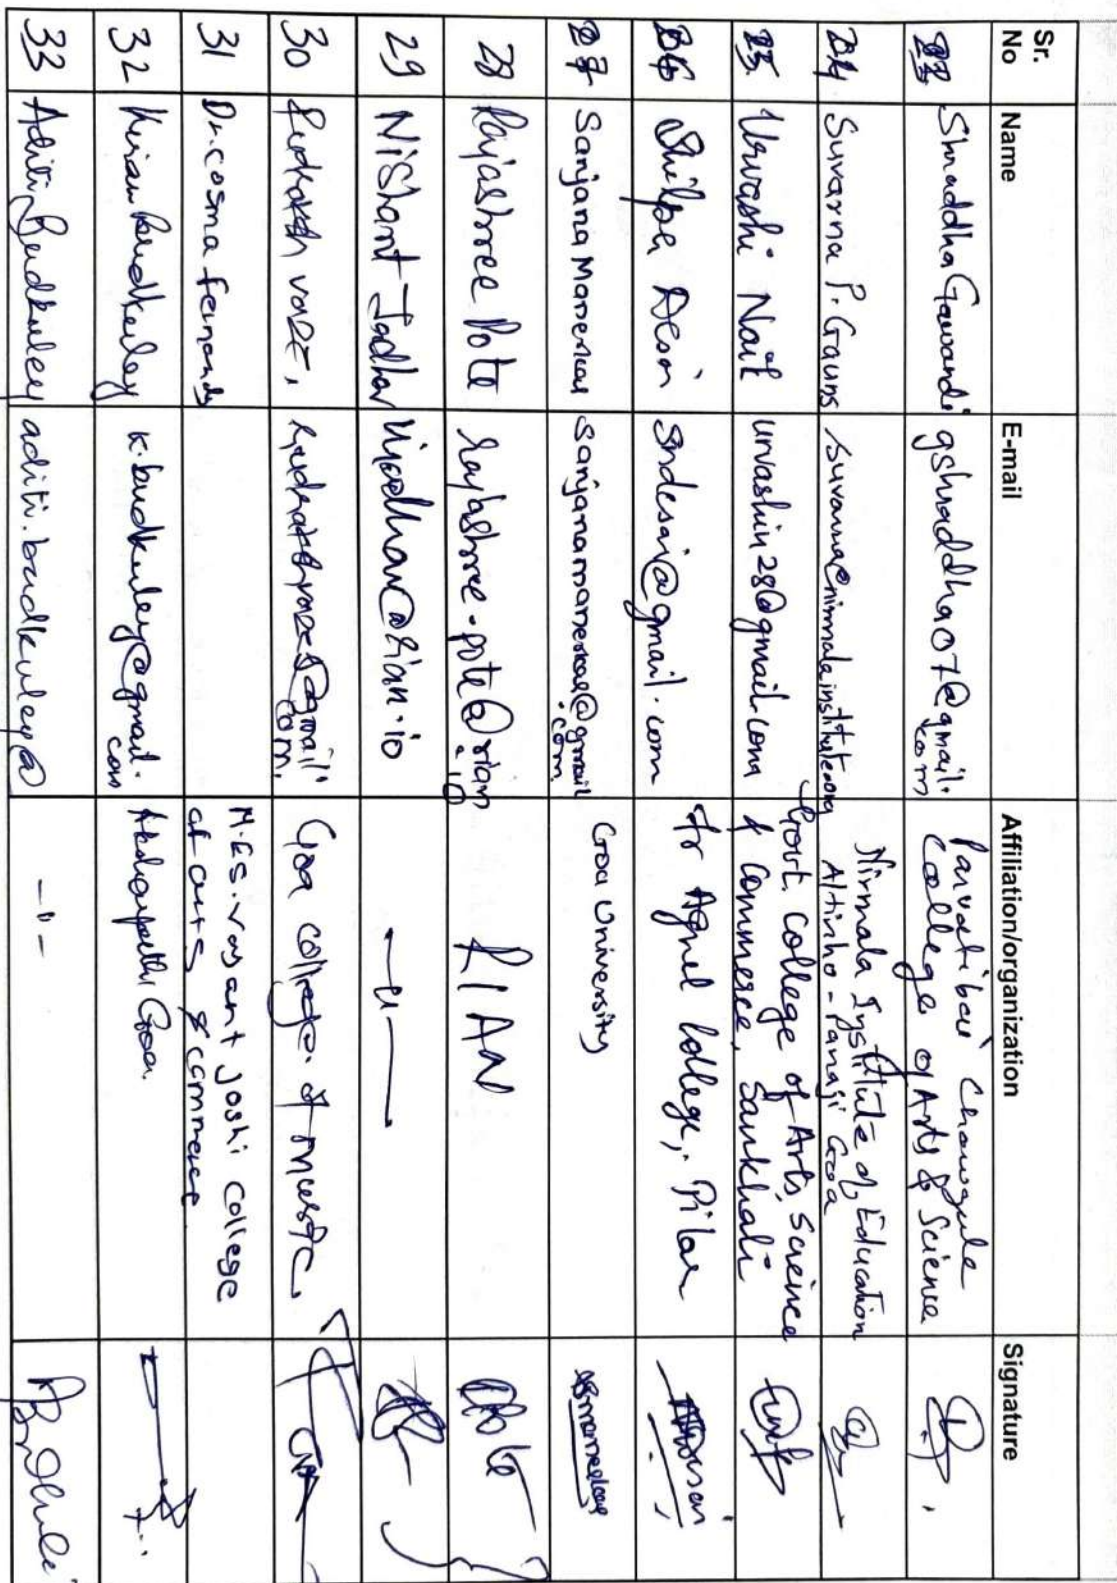 Sr. No Name E-mail Affiliation/organization Signature
23 Shraddha Gawande gshraddha07@gmail.com Parvatibai Chowgule
College of Arts & Science
24 Suvarna P. Gauns suvarna@nirmalainstitute.org Nirmala Institute of Education
Altinho - Panaji Goa
25 Urvashi Naik urvashin28@gmail.com Govt. College of Arts, Science
& Commerce, Sankhali
26 Shilpa Desai sndesai@gmail.com Fr Agnel College, Pilar
27 Sanjana Manerkar sanjanamanerkar@gmail.com Goa University
28 Rajashree Pote rajashree.pote@rian.io RIAN
29 Nishant Jadhav @rian.io —"—
30 Goa college of music
31 Dr. cosma fernandes M.E.S. vasant joshi college
of arts & commerce
32 Kiran Budkuley k.budkuley@gmail.com Goa
33 Aditi Budkuley aditi.budkuley@ —"—